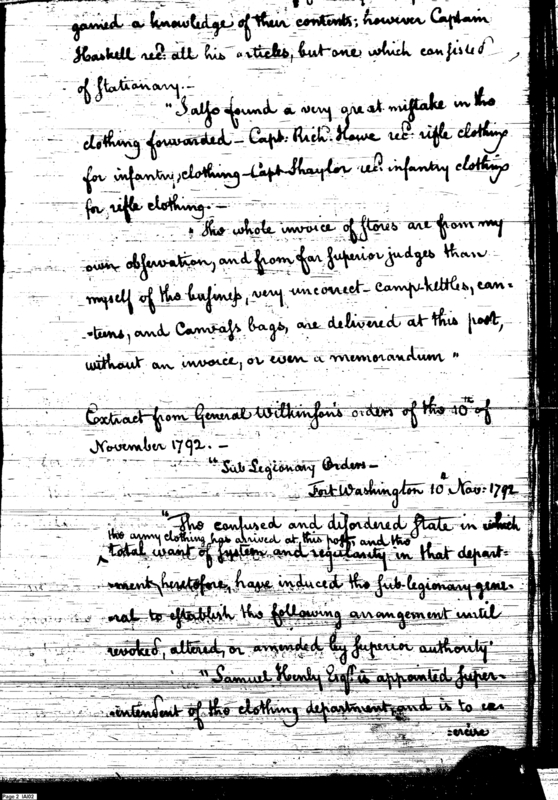 gained a knowledge of their contents; however Captain
Haskell recd. all his articles, but one which consisted
of Stationary.—
"I also found a very great mistake in the
clothing forwarded — Capt. Richd. Howe recd. rifle clothing
for infantry, clothing — Capt Shaylor recd. infantry clothing
for rifle clothing. —
"The whole invoice of Stores are from my
own observation, and from far superior judges than
myself of the business, very uncorrect — camp-kettles, can=
=teens, and Canvass bags, are delivered at this post,
without an invoice, or even a memorandum"
Extract from General Wilkinson's orders of the 10th of
November 1792. —
"Sub Legionary Orders —
Fort Washington 10th Nov: 1792
"The confused and disordered State in which
the army clothing has arrived at this post, and the
total want of System and regularity in that depart=
=ment, heretofore, have induced the sub-legionary gene=
=ral to establish the following arrangement until
revoked, altered, or amended by superior authority"
"Samuel Henly Esqr. is appointed super=
=intendent of the clothing department, and is to ex=
=ercise
Page 2 IAI02